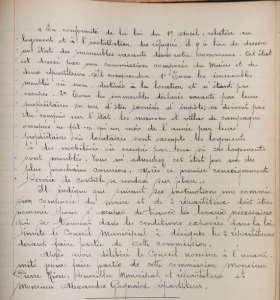 « En conformité de la loi du 19 avril, relative au
logement et à l'installation des réfugiés, il y a lieu de dresser
un état des immeubles vacants dans votre commune. Cet état
est dressé par une commission composée du Maire et de
deux répartiteurs. Il comprendra 1° Tous les immeubles
meublés ou non, destinés à la location et n'étant pas
occupés. 2° Tous les immeubles déclarés vacants par leurs
propriétaires en vue d'être exonérés d'impôts; ne doivent pas
être compris sur l'état les maisons et villas de campagne
occupées en fait ou qui au mois de l'année par leurs
propriétaires
de mobiliers ou occupés par leurs si ces logements
sont meublés. Vous m'adresserez cet état par un des
plus prochains courriers, après ce premier renseignement
service de contrôle se rendra sur place. »
Il indique que suivant ses instructions une commis-
sion composée du maire et de 2 répartiteurs doit être
nommée dans le but de trouver les locaux nécessaires
dans les conditions exposées dans la loi,
invite le Conseil Municipal à désigner les 2 répartiteurs
devant faire partie de cette commission.
Après avoir délibéré le Conseil nomme à l'unani-
mité pour faire partie de cette commission, Monsieur
Pierre, Conseiller Municipal et répartiteur et
Monsieur Alexandre répartiteur.